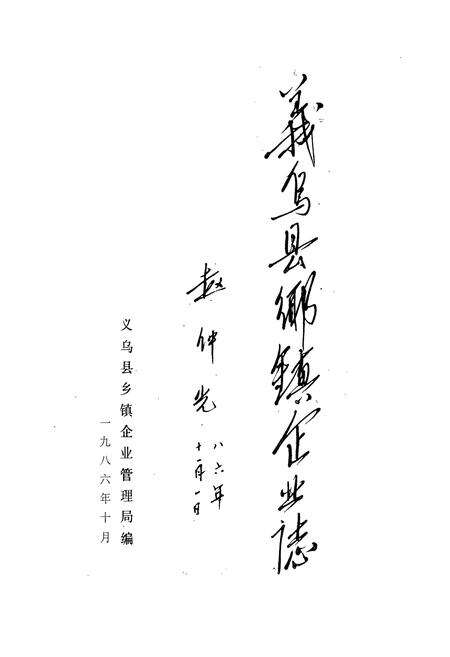 義烏县鄉鎮企业誌
赵仲光
八六年
十一月一日
义乌县乡镇企业管理局编
一九八六年十月